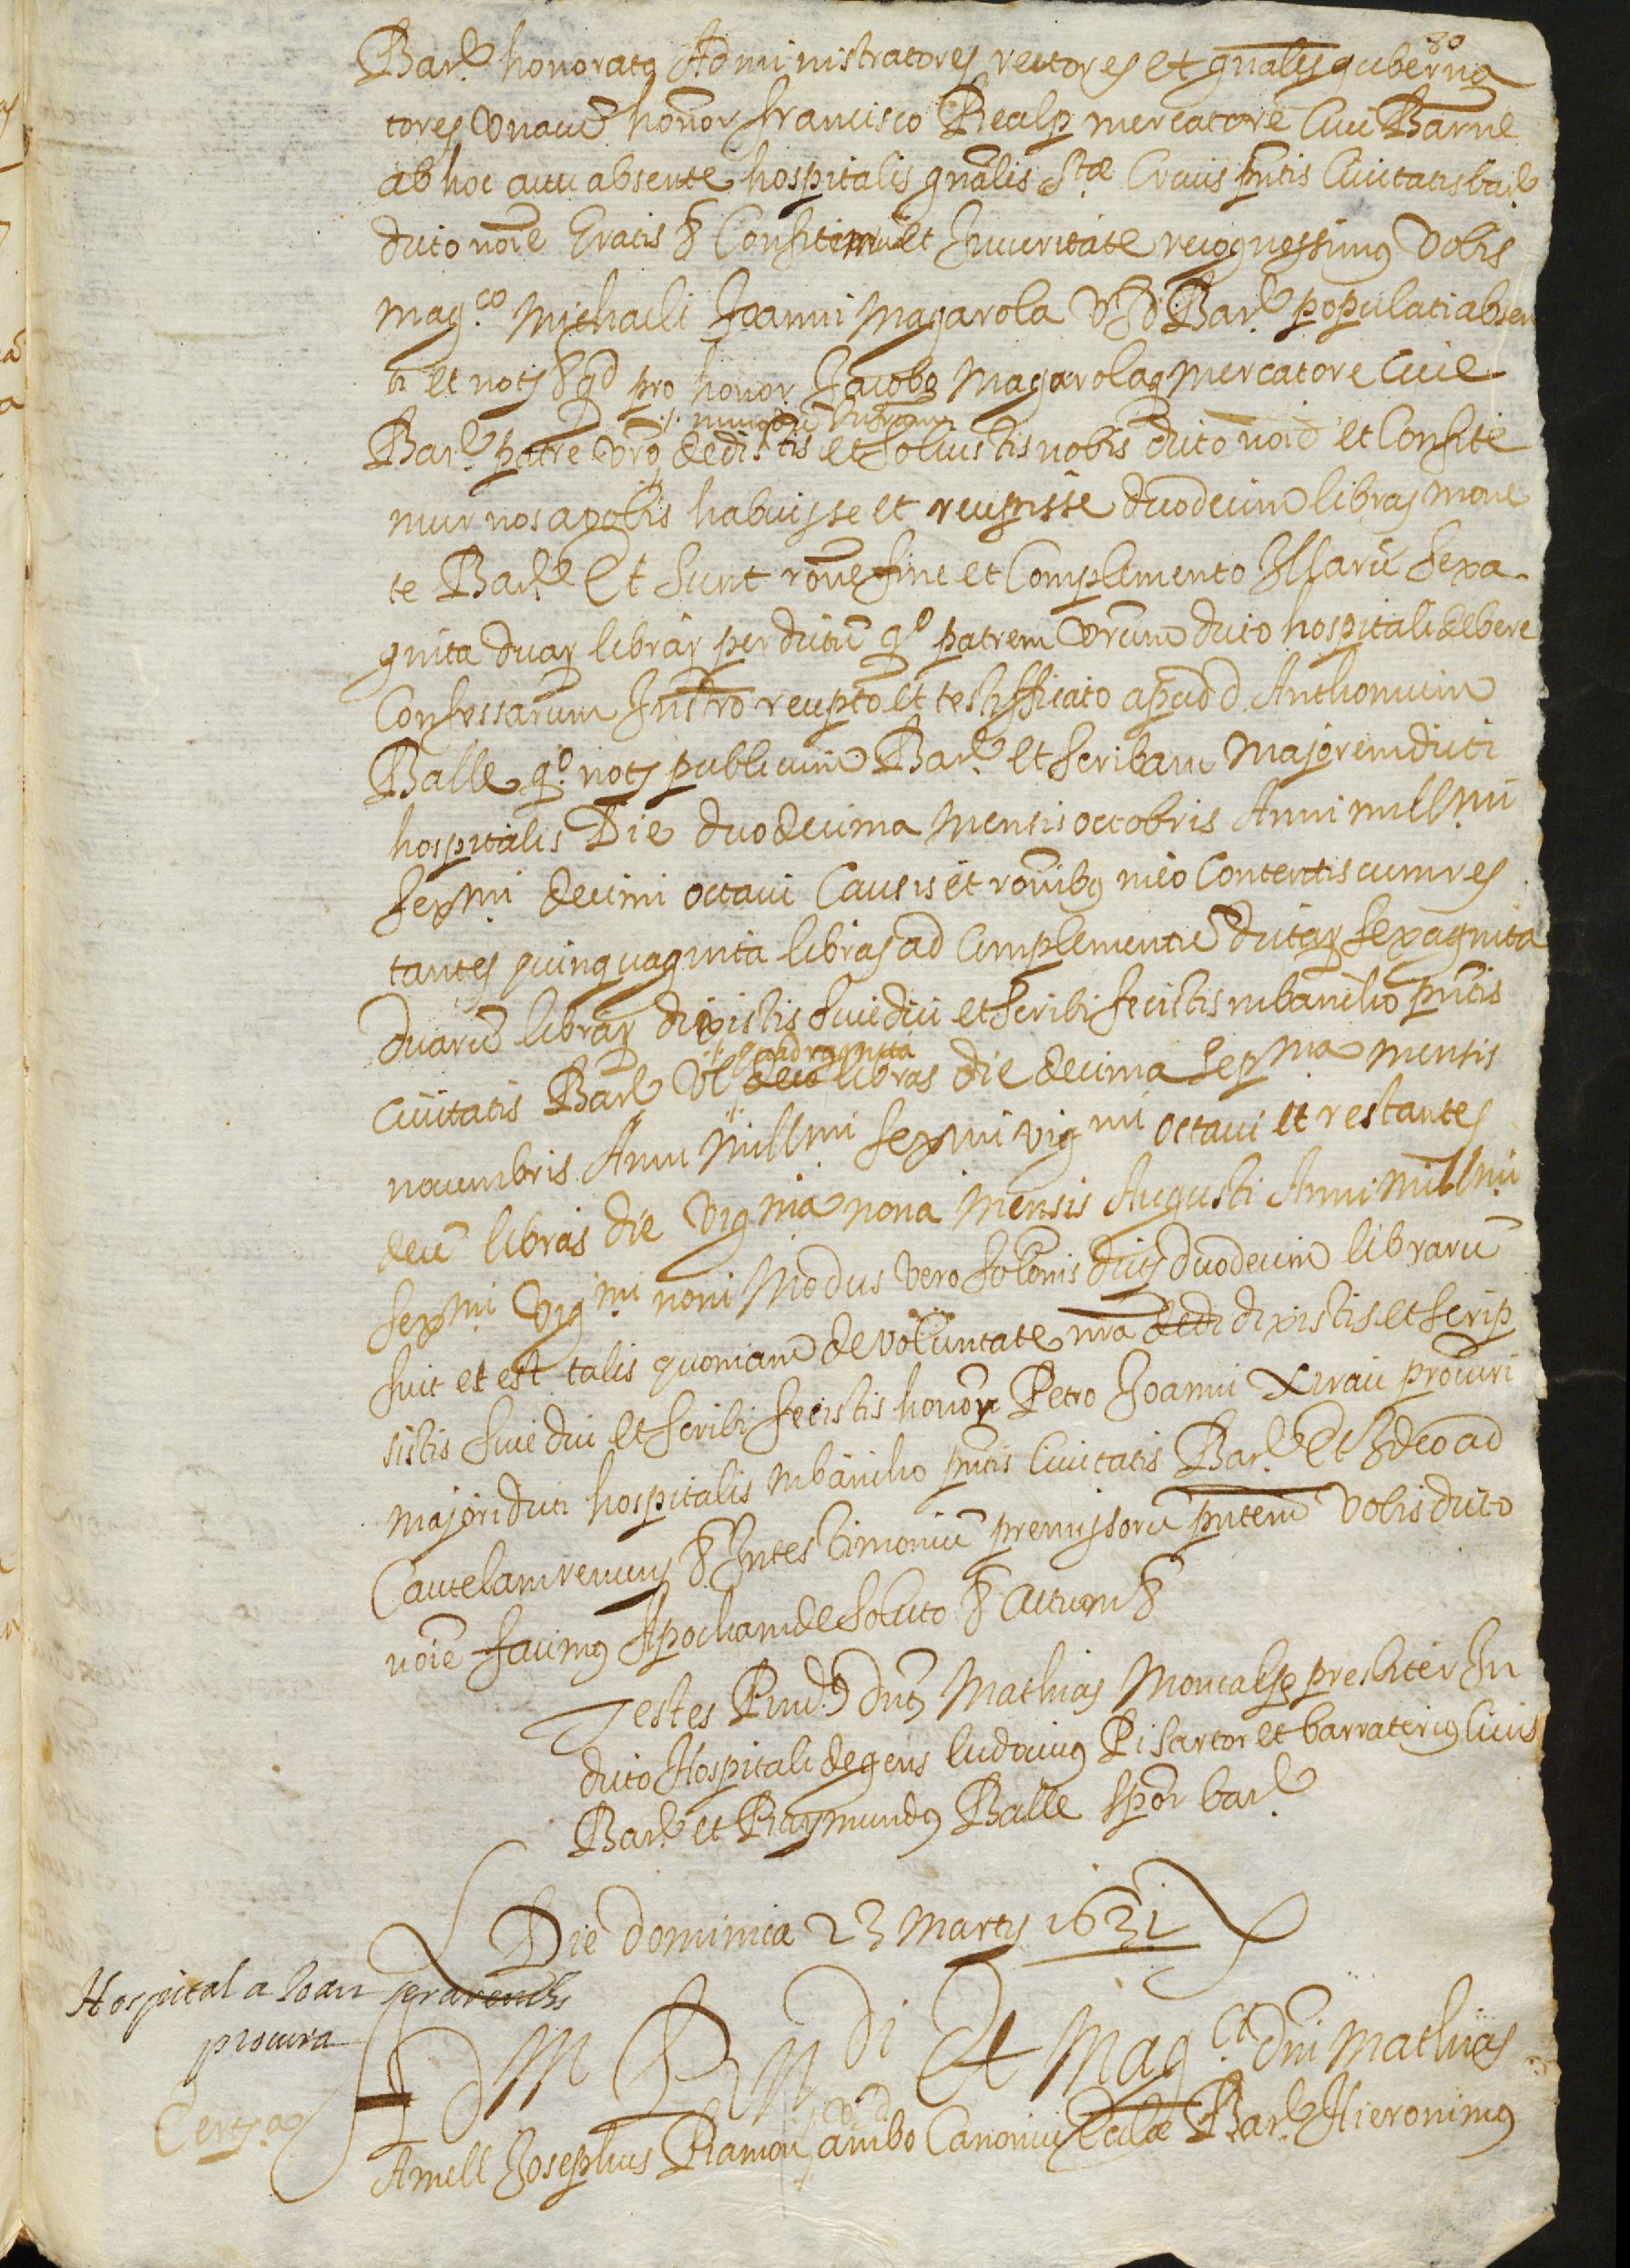 80
Bar.e honoratus Administratores rectores et gnales guberna
tores unacu honor francisco Realp mercatore Civi Barne
ab hoc actu absente hospitalis gnalis Stae Crucis pntis Civitatis bar.e
dicto noie Gratis & Confitemur et In veritate recognossimus Vobis
mag.co Michaeli Joanni Magarola V J D Bar.e populati absen
ti et nots & qd pro honor Jacobo Magarola q mercatore Cive
Bar.e patre vro dedistis et soluistis nobis dicto noie et Confite
mur nos a vobis habuisse et recepisse duodecim libras mone
te Bar.e Et sunt rone fine et Complemento Illaru sexa
ginta duar librar per dictu q.o patrem vrum dicto hospitali debere
Confessarum Instro recepto et testifficato apud d. Anthonium
Balle q.o nots publicum Bar.e et scribam Majorem dicti
hospitalis Die duodecima mensis octobris Anni mill.mi
sex.mi decimi octavi Causis et ronibus in eo Contentis cum res
tantes quinquaginta libras ad Complementu dictar sexaginta
duaru librar dixistis sive dici et scribi fecistis in bancho pntis
quadraginta
civitatis Bar.e Vt decé libras die decima sep.ma mensis
novembris Anni Mill.mi sex.mi vig.mi octavi et restantes
decé libras die Vig.ma nona Mensis Augusti Anni Mill.mi
sex.mi Vig.mi noni Modus vero solonis dictus duodecim libraru
fuit et est talis quoniam de voluntate nra dedi dixistis et scrip
sistis sive dici et scribi fecistis honor Petro Joanni Xirau procuri
majori dicti hospitalis in bancho pntis Civitatis Bar.e Et Ideo ad
Cautelam renuns & In testimoniu premissoru pntem Vobis dicto
noie facimus Apocham de soluto & actum &
Testes Rnd.us dns Mathias Moncalp presbiter In
dicto Hospitali degens ludovicus Pi sartor et barraterius civis
Bar.e et Raymundus Balle sptor bar.e
Die dominica 23 Martij 1631
Hospital a Joan
procura
Certa
Id M Rndi Et Mag.ci dni Mathias
V J D
Amell Josephus Ramon ambo Canonici Ecclae Bar.e Hieronimus